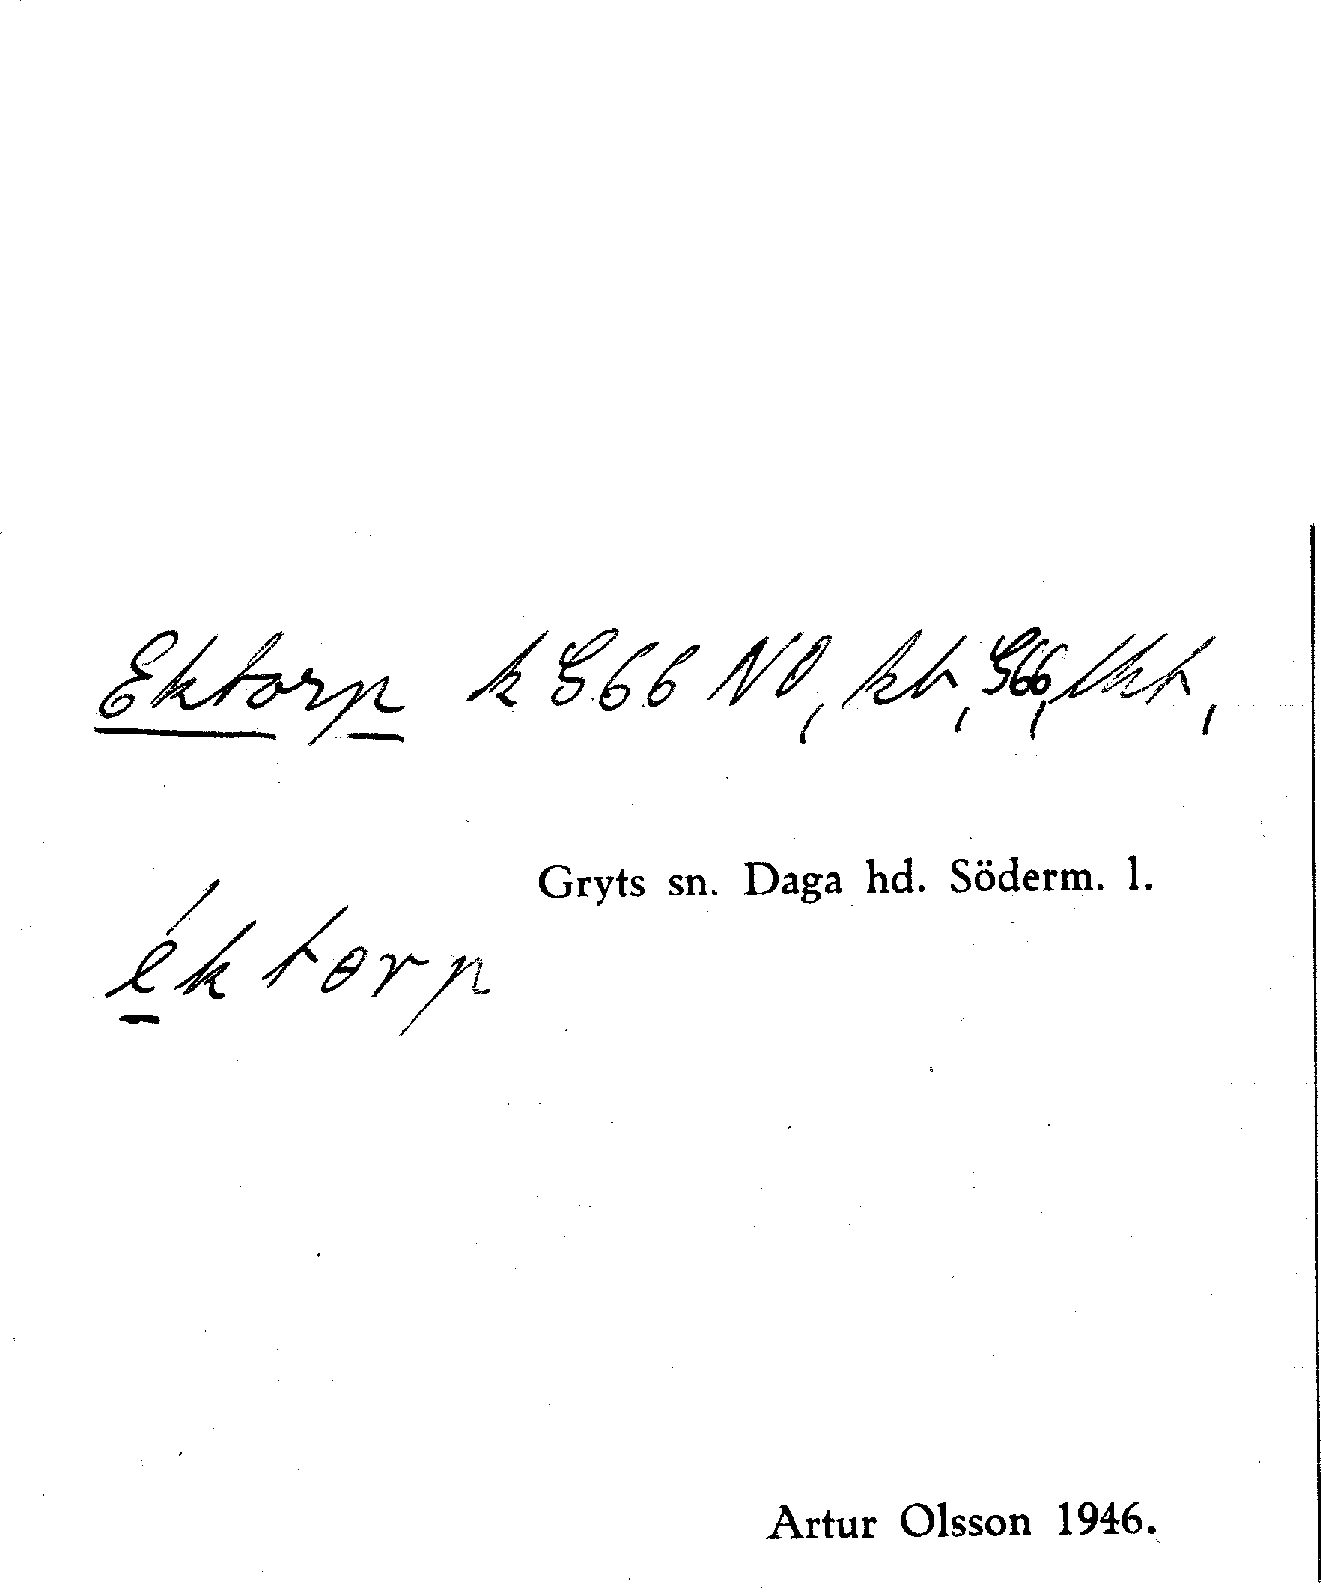 Ektorp k G66 NO, kt, G66, lkt,
Gryts sn. Daga hd. Söderm. l.
éktɵrp
Artur Olsson 1946.